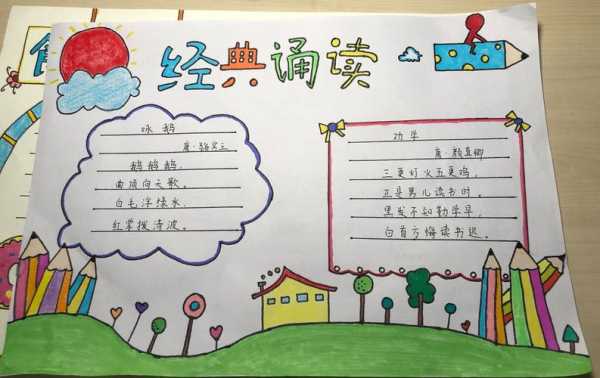 经典诵读
咏 鹅
唐·骆宾王
鹅鹅鹅,
曲项向天歌。
白毛浮绿水,
红掌拨清波。
劝学
唐·颜真卿
三更灯火五更鸡,
正是男儿读书时。
黑发不知勤学早,
白首方悔读书迟。